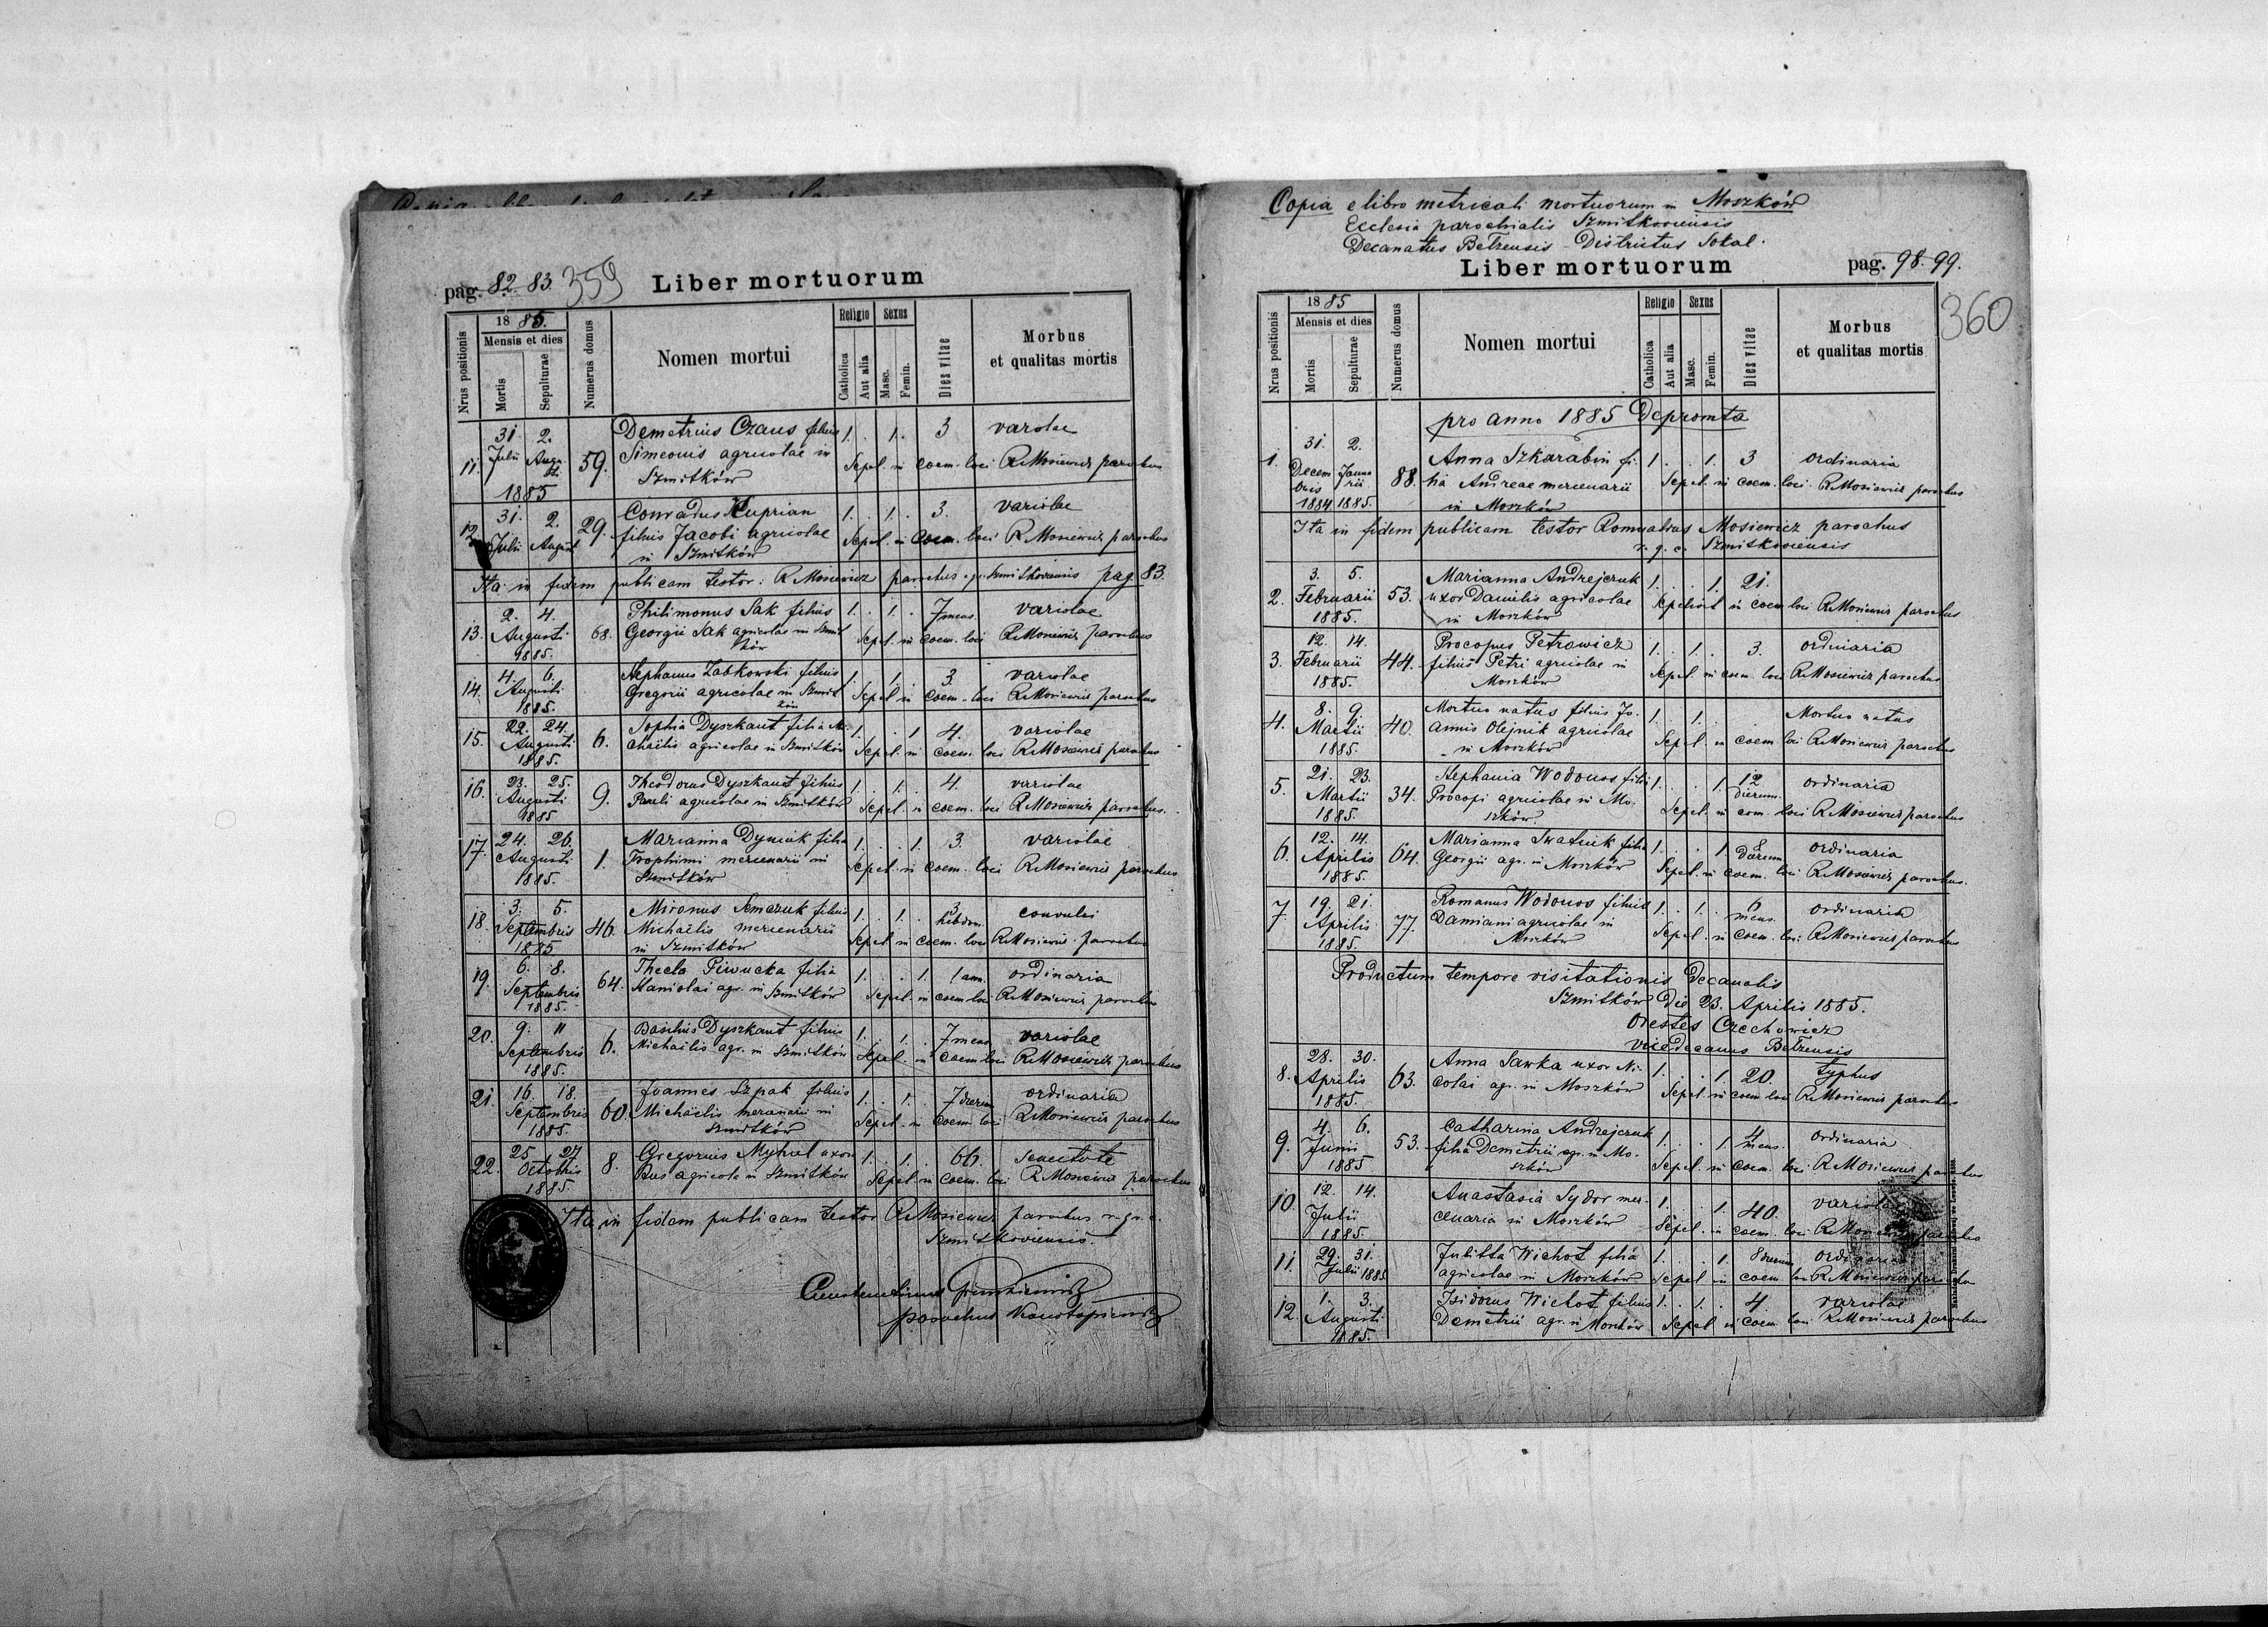 pag. 82. 83. 359 Liber mortuorum
Nrus positionis
1885.
Mensis et dies
Mortis
Sepulturae
Numerus domus
Nomen mortui
Religio
Catholica
Aut alia
Sexus
Masc.
Femin.
Dies vitae
Morbus
et qualitas mortis
11. 31. 2. 59. Demetrius Czaus filius 1. 1. 3 variolae
Julii Augusti Simeonis agricolae in Sepel. in coem. loci R Mosiewicz parochus
1885 Szmitków
12. 31. 2. 29. Conradus Kuprian 1. 1. 3. variolae
Julii August filius Jacobi agricolae Sepel. in coem. loci R Mosiewicz parochus
in Szmitków
Ita in fidem publicam testor: R Mosiewicz parochus Szmitkoviensis pag. 83.
13. 2. 4. 68. Philimonus Sak filius 1. 1. 7 mens. variolae
Augusti Georgii Sak agricolae in Szmit Sepel. in coem. loci R Mosiewicz parochus
1885. ków
14. 4. 6. Stephanus Zabkowski filius 1. 1. 3 variolae
Augusti Gregorii agricolae in Szmit Sepel in coem. loci R Mosiewicz parochus
1885. ków
15. 22. 24. 6. Sophia Dyszkant filia Mi- 1. 1 4. variolae
Augusti chaëlis agricolae in Szmitków Sepel. in coem. loci R Mosiewicz parochus
1885.
16. 23. 25. 9. Theodorus Dyszkant filius 1. 1. 4. variolae
Augusti Pauli agricolae in Szmitków Sepel. in coem. loci R Mosiewicz parochus.
1885
17. 24. 26. 1. Marianna Dyniuk filia 1. 1. 3. variolae
Augusti Trophimi mercenarii in Sepel. in coem. loci R Mosiewicz parochus
1885. Szmitków
18. 3. 5. 46. Mironus Semczuk filius 1. 1. 3 hebdom. convulsi
Septembris Michaëlis mercenarii Sepel in coem. loci R Mosiewicz parochus
1885 in Szmitków
19. 6. 8. 64. Thecla filia 1. 1. 1 ann. ordinaria
Septembris Stanislai agr. in Szmitków Sepel. in coem loci R Mosiewicz parochus
1885.
20. 9. 11 6. Basilius Dyszkant filius 1. 1. 7 mens variolae
Septembris Michaëlis agr. in Szmitków Sepel. in coem loci R Mosiewicz parochus
1885.
21. 16. 18. 60. Joannes Szpak filius 1. 1. 7 dierum ordinaria
Septembris Michaëlis mercenarii in Sepel. in coem loci R Mosiewicz parochus
1885 Szmitków
22. 25. 27 8. Gregorius uxora 1. 1. 66. senectute
Octobris tus agricola in Szmitków Sepel. in coem. loci R Mosiewicz parochus
1885.
Ita in fidem publicam testor R Mosiewicz parochus r. gr. c.
Szmitkoviensis.
parochus
Copia e libro metricali mortuorum in Moszków
Ecclesia parochialis Szmitkoviensis
Decanatus Bełzensis - Districtus Sokal.
Liber mortuorum pag. 98. 99.
360
Nrus positionis
1885
Mensis et dies
Mortis
Sepulturae
Numerus domus
Nomen mortui
Religio
Catholica
Aut alia
Sexus
Masc.
Femin.
Dies vitae
Morbus
et qualitas mortis
pro anno 1885 Depromta
1. 31. 2. 88. Anna Szkarabin fi- 1. 1. 3 ordinaria
Decembris Januarii lia Andreae mercenarii Sepel. in coem. loci R Mosiewicz parochus
1884 1885. in Moszków
Ita in fidem publicam testor Romualdus Mosiewicz parochus
r. g. c. Szmitkoviensis
2. 3. 5. 53. Marianna Andrejczuk 1. 1. 21.
Februarii uxor Danielis agricolae Sepelivit in coem loci R Mosiewicz parochus
1885. in Moszków
3. 12. 14. 44. Procopus Petrowicz 1. 1. 3. ordinaria
Februarii filius Petri agricolae in Sepel. in coem. loci R Mosiewicz parochus
1885. Moszków
4. 8. 9. 40. Mortuo natus filius Jo- 1. 1. Mortuo natus
Martii annis Olejnik agricolae Sepel in coem loci R Mosiewicz parochus
1885. in Moszków
5. 21. 23. 34. Stephania Wodonos filia 1. 1. 12 dierum ordinaria
Martii Procopi agricolae in Mo- Sepel. in coem. loci R Mosiewicz parochus
1885. szków.
6. 12. 14. 64. Marianna Swatnik filia 1. 1. 8 dierum ordinaria
Aprilis Georgii agr. in Moszków Sepel. in coem. loci R Mosiewicz parochus.
1885.
7 19. 21. 77. Romanus Wodonos filius 1. 1. 6 mens. ordinaria
Aprilis Damiani agricolae in Sepel. in coem. loci R Mosiewicz parochus
1885. Moszków
Productum tempore visitationis Decanalis
Szmitków Die 23. Aprilis 1885.
Orestes Czechowicz
Vicedecanus Bełzensis
8. 28. 30. 63. Anna Sawka uxor Ni- 1. 1. 20. typhus
Aprilis colai agr. in Moszków Sepel. in coem loci R Mosiewicz parochus
1885.
9. 4. 6. 53. Catharina Andrejczuk 1. 1. 4 mens. ordinaria
Junii filia Demetrii agr. in Mo- Sepel. in coem. loci R Mosiewicz parochus
1885 szków
10. 12. 14. Anastasia Sydor mer- 1. 1. 40. variolae
Julii cenaria in Moszków Sepel. in coem. loci R Mosiewicz parochus
1885.
11. 29. 31. Julitta Wichot filia 1. 1. 8 dierum ordinaria
Julii 1885 agricolae in Moszków Sepel in coem loci R Mosiewicz parochus
12. 1. 3. Isidorus Wichot filius 1. 1. 4. variolae
Augusti Demetrii agr. in Moszków Sepel in coem. loci R Mosiewicz parochus
1885.